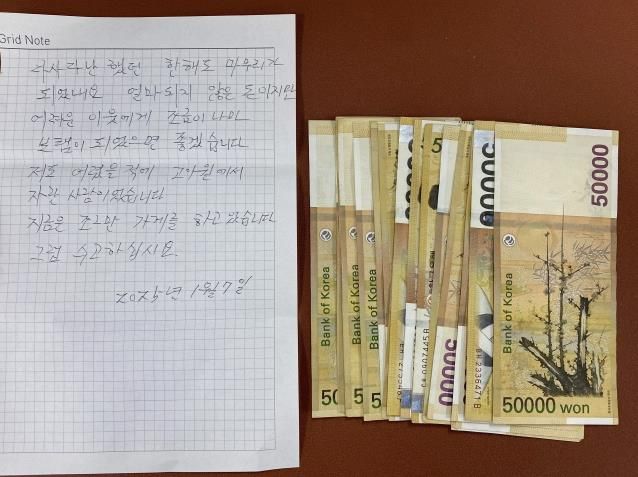 Grid Note
다사다난 했던 한해도 마무리가
되었네요 얼마되지 않은 돈이지만
어려운 이웃에게 조금이나마
보탬이 되었으면 좋겠습니다
저도 어렸을적에 고아원에서
자란 사람이였습니다
지금은 조그만 가게를 하고 있습니다
그럼 수고하십시요.
2025년 1월 7일
Bank of Korea
Bank of Korea
Bank of Korea
Bank of Korea
50000
50000
50000
50000 won
0907445B
2336471B